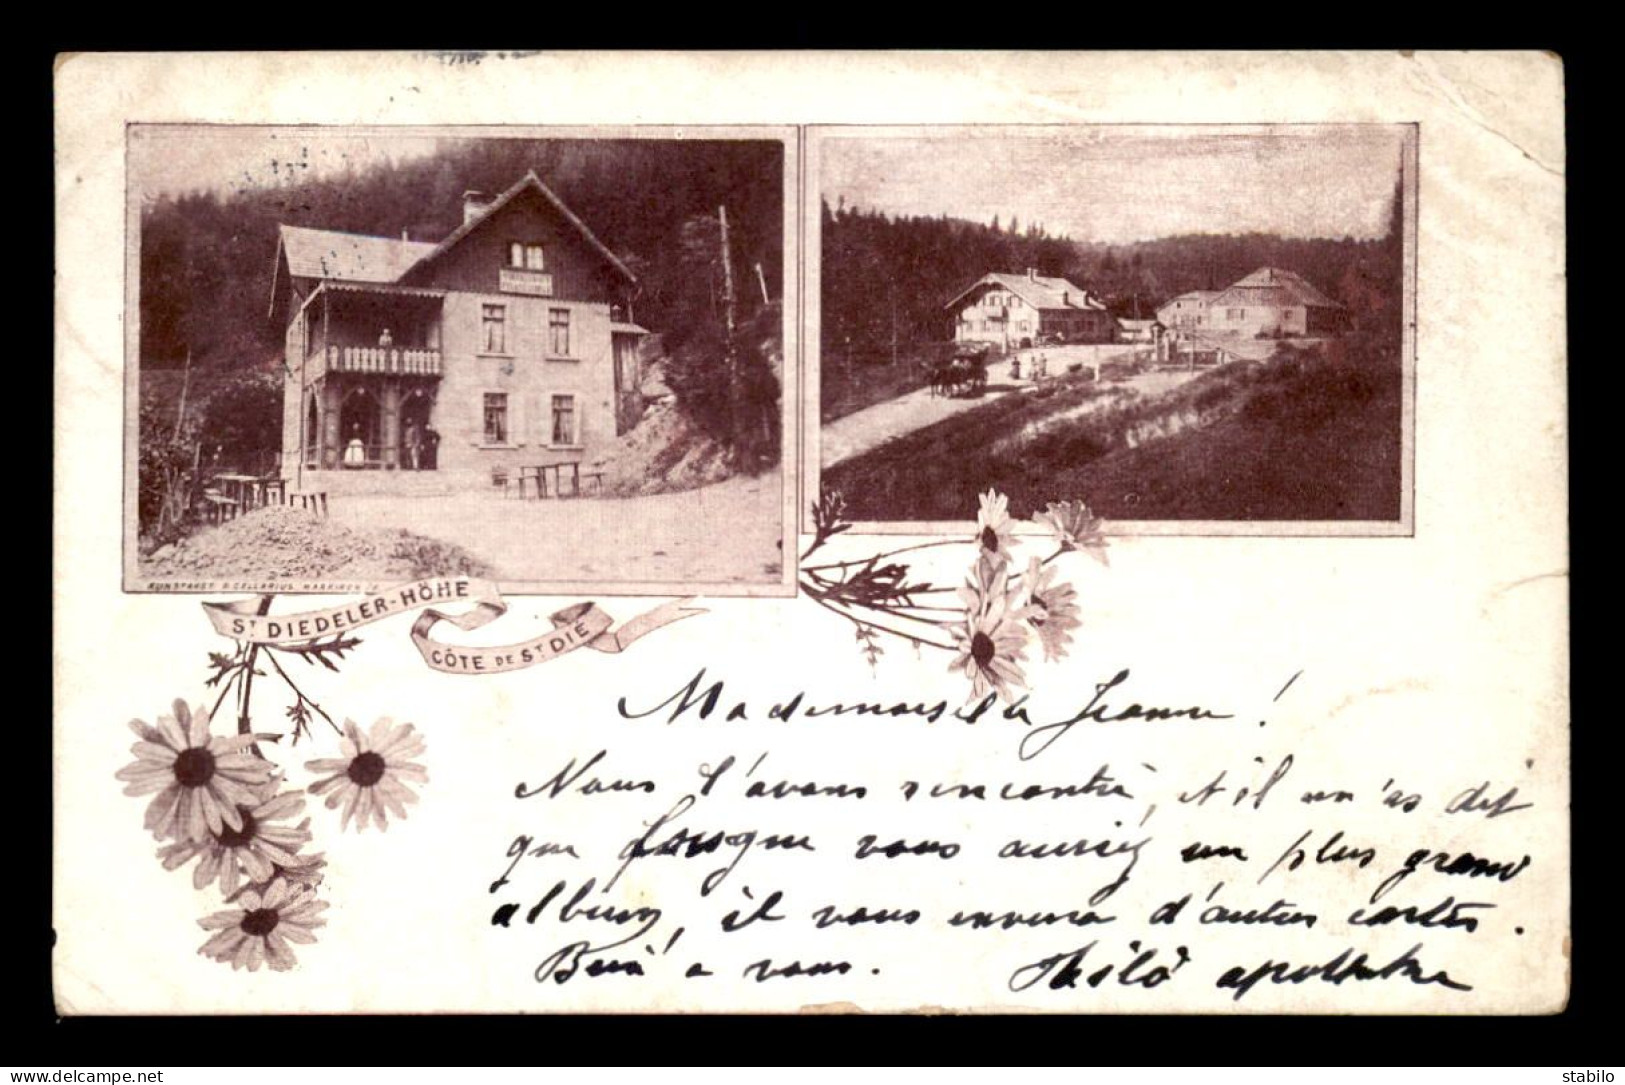 KUNSTANST. A. CELLARIUS, MARKIRCH i/E.
ST DIEDELER-HÖHE
CÔTE DE ST DIÉ
Mademoiselle Jeanne !
Nous l'avons rencontré, et il m'as dit
que lorsque vous auriez un plus grand
album, il vous enverra d'autres cartes.
à vous. Thilo
www.delcampe.net
stabilo